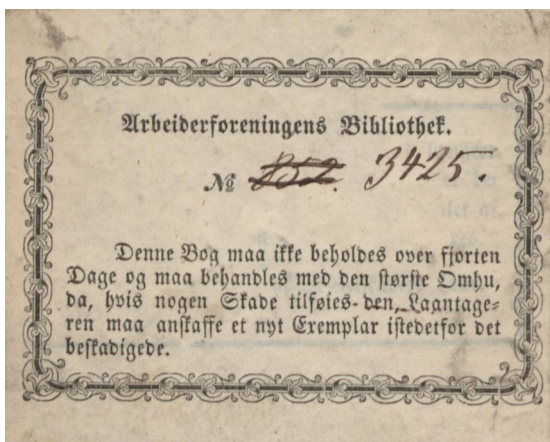 Arbeiderforeningens Bibliothek.
No 852. 3425.
Denne Bog maa ikke beholdes over fjorten
Dage og maa behandles med den største Omhu,
da, hvis nogen Skade tilføies den, Laantage-
ren maa anskaffe et nyt Exemplar istedetfor det
beskadigede.